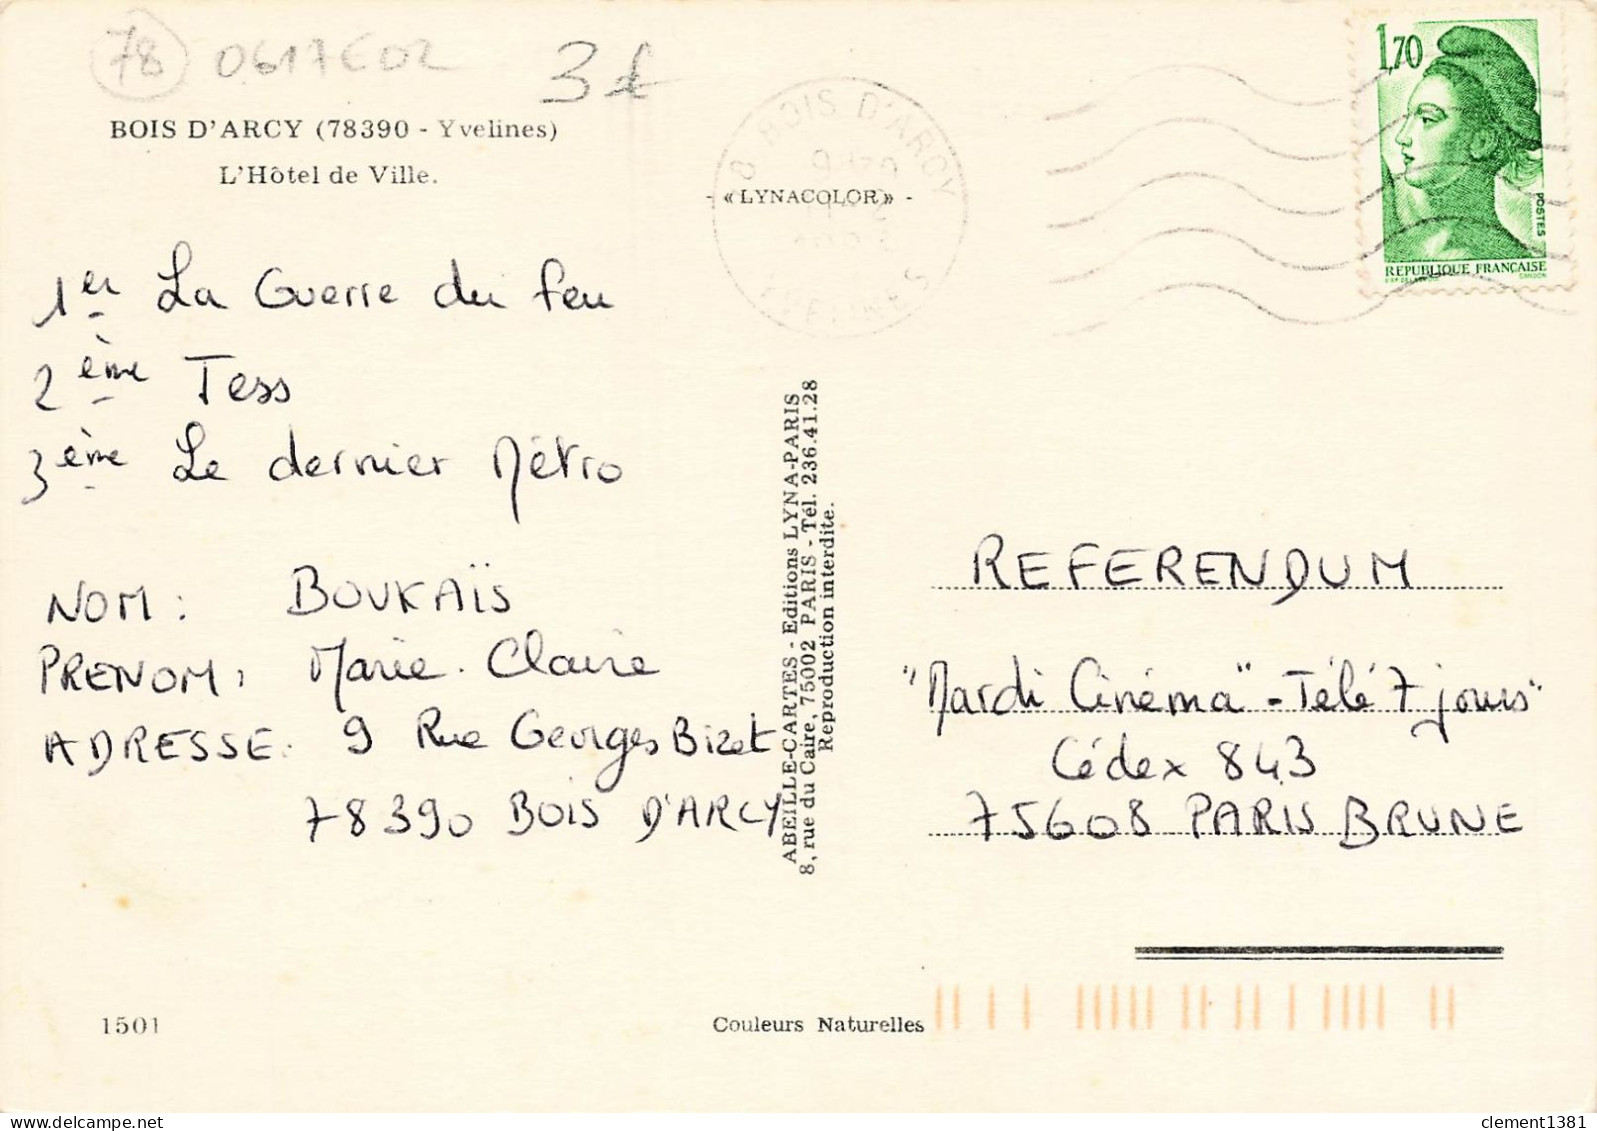 78 0617E02 3€
BOIS D'ARCY (78390 - Yvelines)
L'Hôtel de Ville.
- «LYNACOLOR» -
BOIS D'ARCY
YVELINES
1,70
POSTES
REPUBLIQUE FRANÇAISE
1er La Guerre du feu
2ème Tess
3ème Le dernier Métro
NOM: BOUKAÏS
PRENOM: Marie-Claire
ADRESSE: 9 Rue Georges Bizet
78390 BOIS D'ARCY
ABEILLE-CARTES - Editions LYNA-PARIS
8, rue du Caire, 75002 PARIS - Tél. 236.41.28
Reproduction interdite.
REFERENDUM
"Mardi Cinéma" - Télé 7 jours"
Cédex 843
75608 PARIS BRUNE
1501
Couleurs Naturelles
clement1381